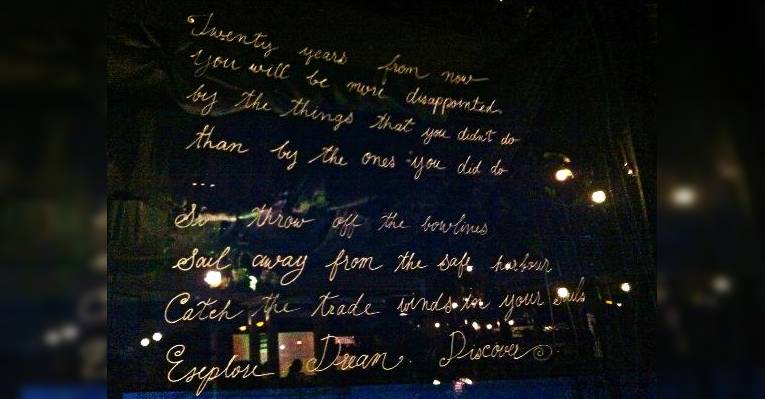 Twenty years from now
You will be more disappointed
by the things that you didn't do
than by the ones you did do
...
So throw off the bowlines
Sail away from the safe harbour
Catch the trade winds in your sails
Explore. Dream. Discover